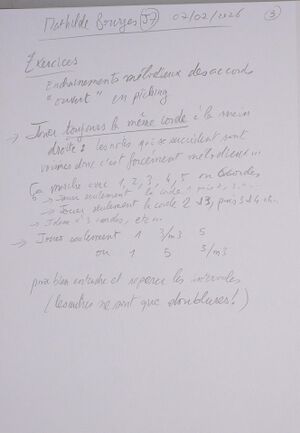 Mathilde Bourges 57 07/02/2026 3
Exercices
Enchaînements mélodieux des accords
"ouvert" en picking
→ Jouer toujours la même corde à la main
droite : les notes qui se succèdent sont
voisines donc c'est forcément mélodieux...
Ça marche avec 1, 2, 3, 4, 5 ou 6 cordes
→ Jouer seulement la corde 1 puis 2, 3...
→ Jouer seulement la corde 2 et 3, puis 3 et 4 etc
→ Idem à 3 cordes, etc...
→ Jouer seulement 1 3/m3 5
ou 1 5 3/m3
pour bien entendre et repérer les intervalles
(les autres ne sont que doublures !)